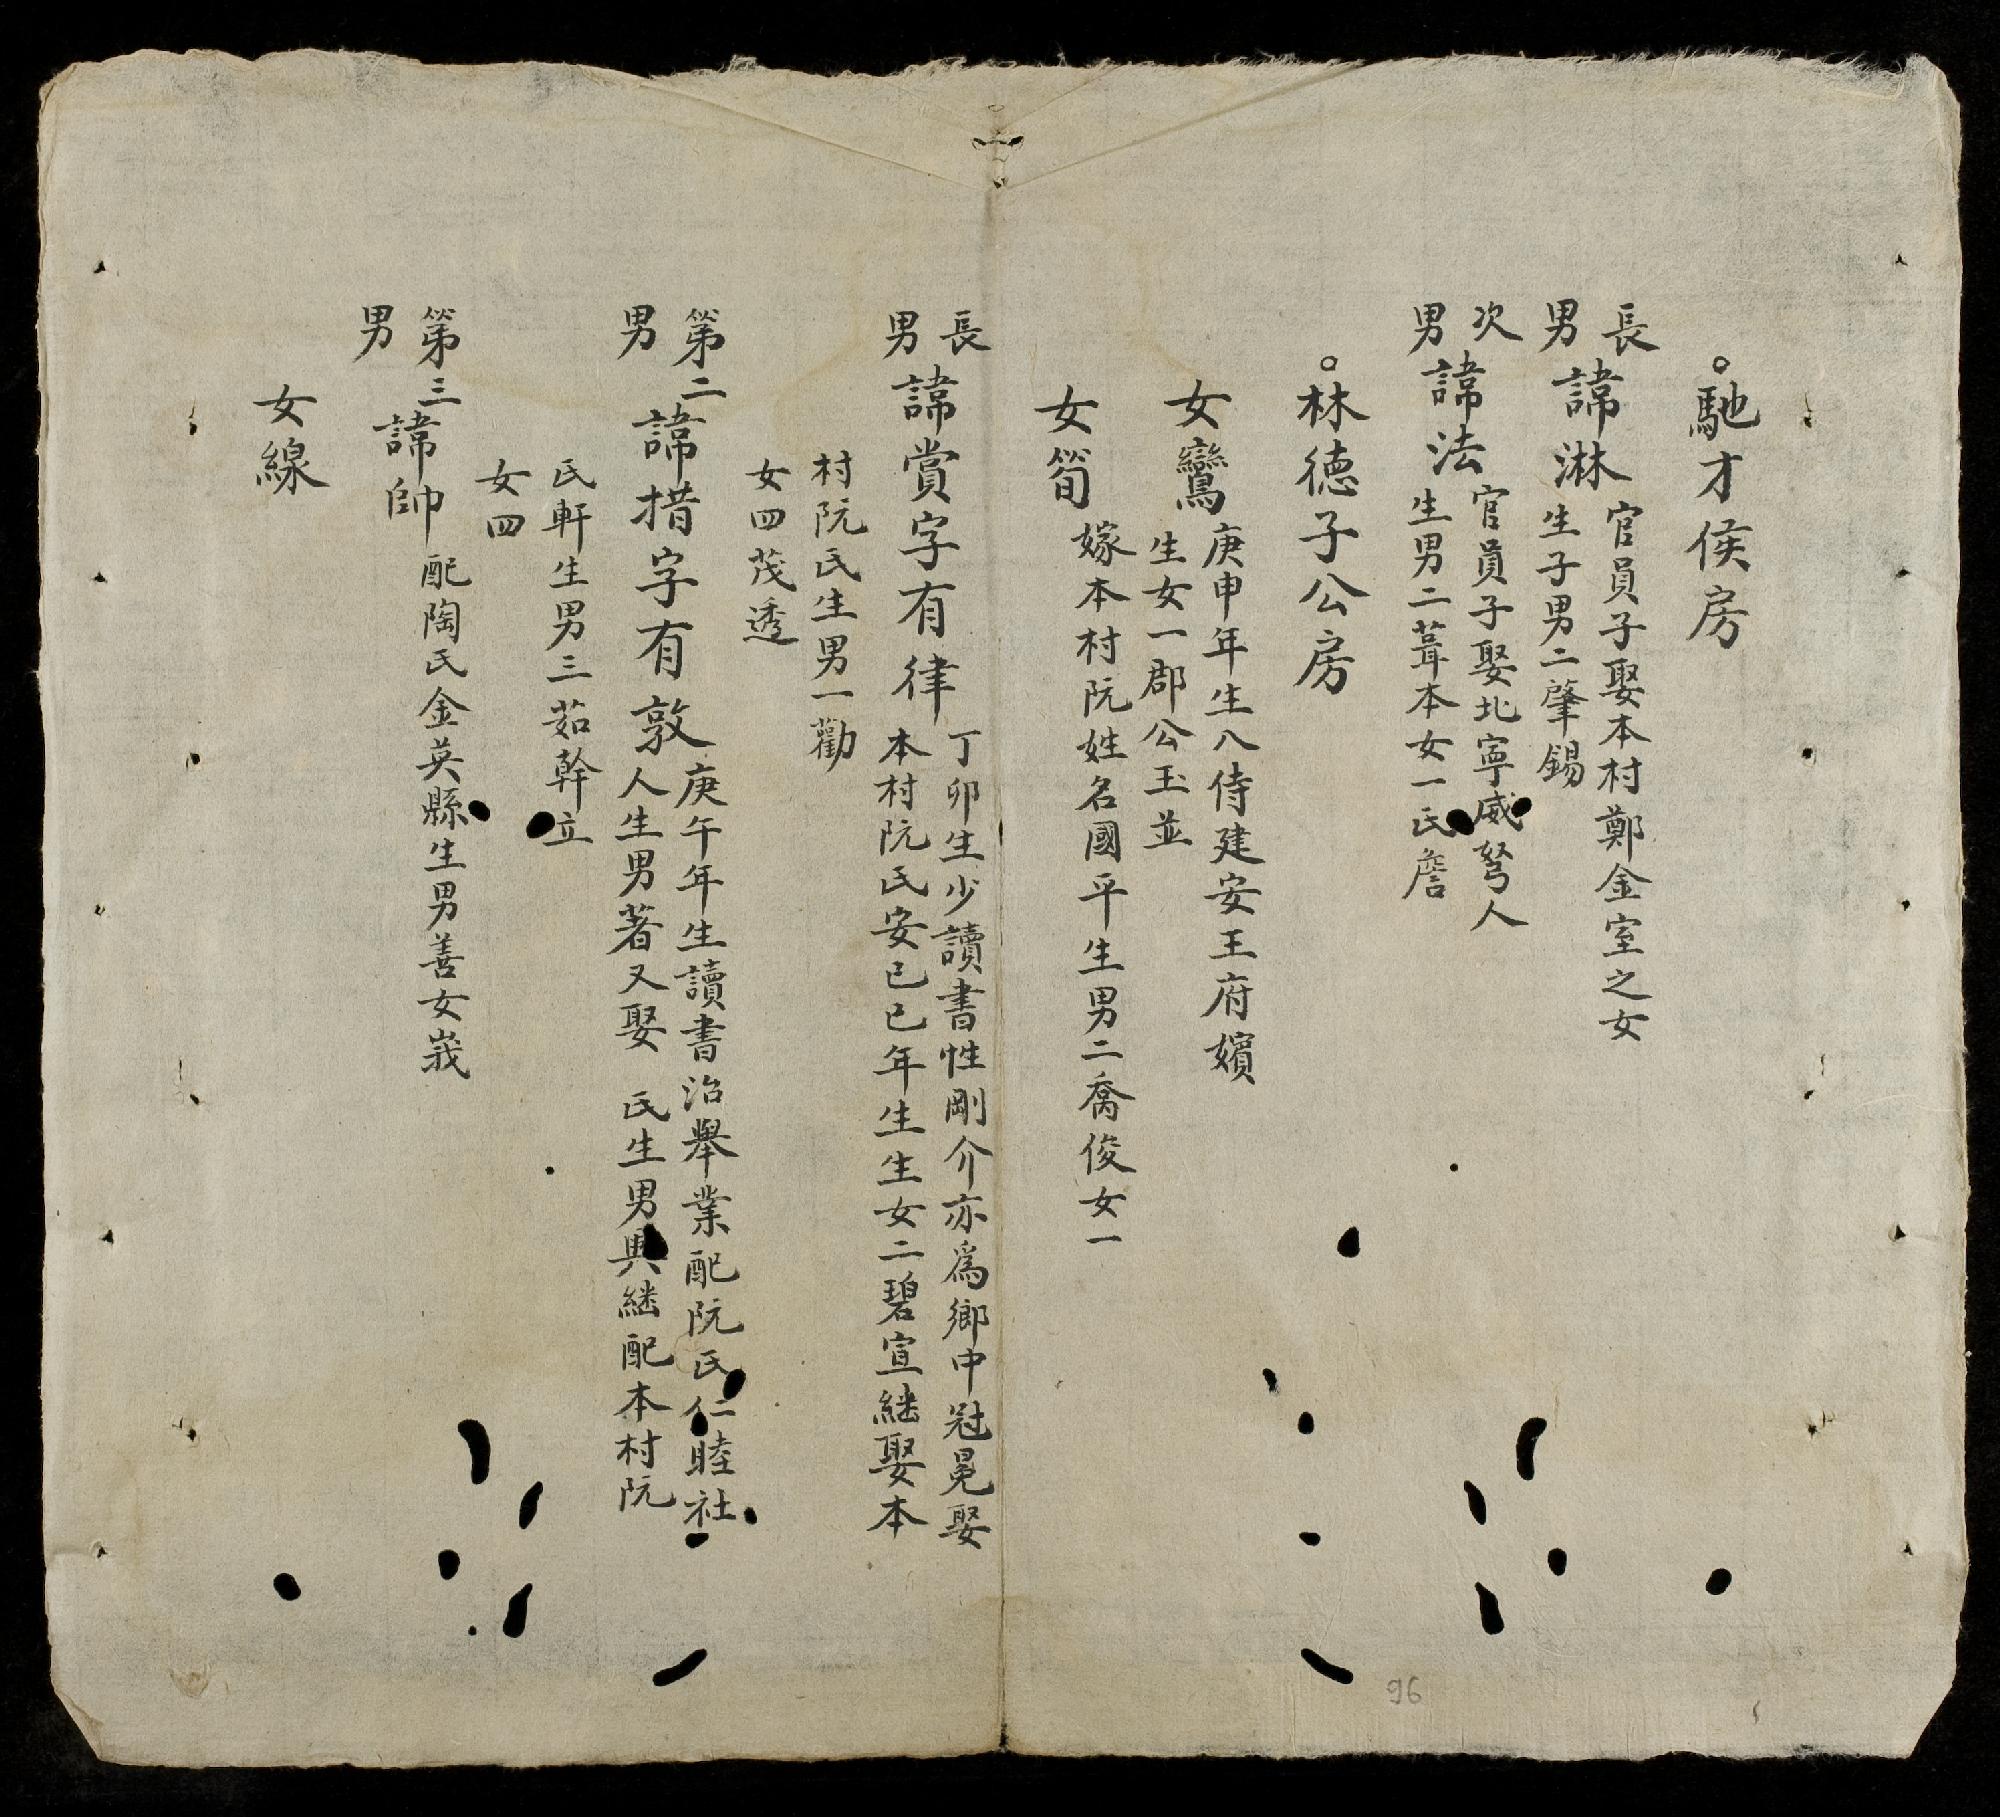 ○馳才侯房
長男 諱淋 官員子娶本村鄭金室之女
生子男二肇錫
次男 諱法 官員子娶北寧威弩人
生男二葺本女一氏詹
○林德子公房
女鸞 庚申年生入侍建安王府嬪
生女一郡公玉並
女筍 嫁本村阮姓名國平生男二喬俊女一
長男 諱賞字有律 丁卯生少讀書性剛介亦爲鄉中冠冕娶
本村阮氏安己巳年生生女二碧宣継娶本
村阮氏生男一勸
女四茂透
第二男 諱措字有敦 庚午年生讀書治舉業配阮氏仁睦社
人生男著又娶 氏生男興継配本村阮
氏軒生男三茹幹立
女四
第三男 諱帥 配陶氏金英縣生男善女峩
女線
96